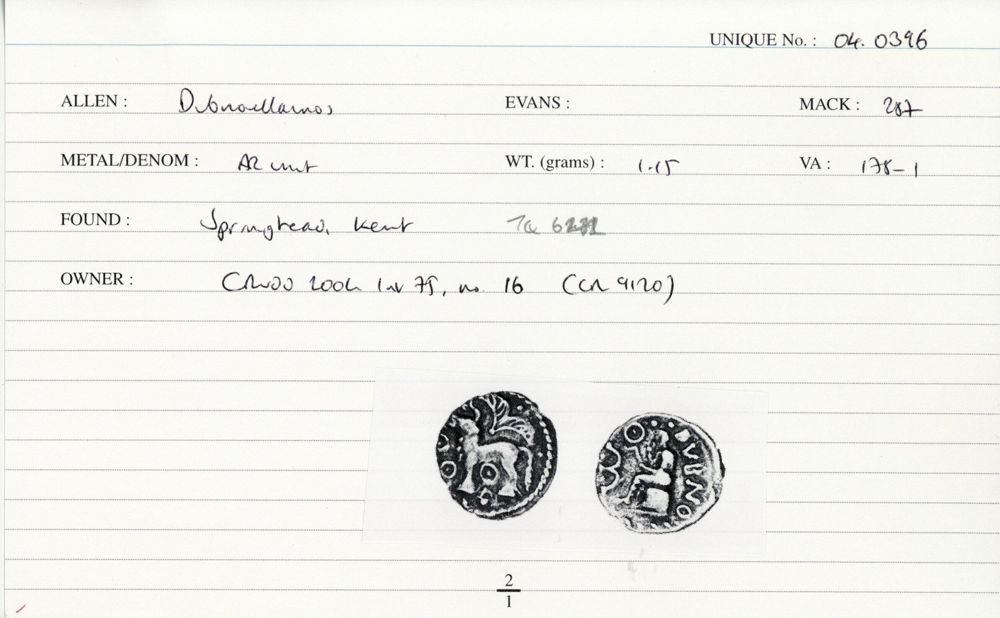 UNIQUE No. : 04. 0396
ALLEN : Dubnovellaunos EVANS : MACK : 287
METAL/DENOM : AR unit WT. (grams) : 1.15 VA : 178-1
FOUND : Springhead, Kent TQ
OWNER : 75, no. 16 (CR 9120)
DVBNO
2
1